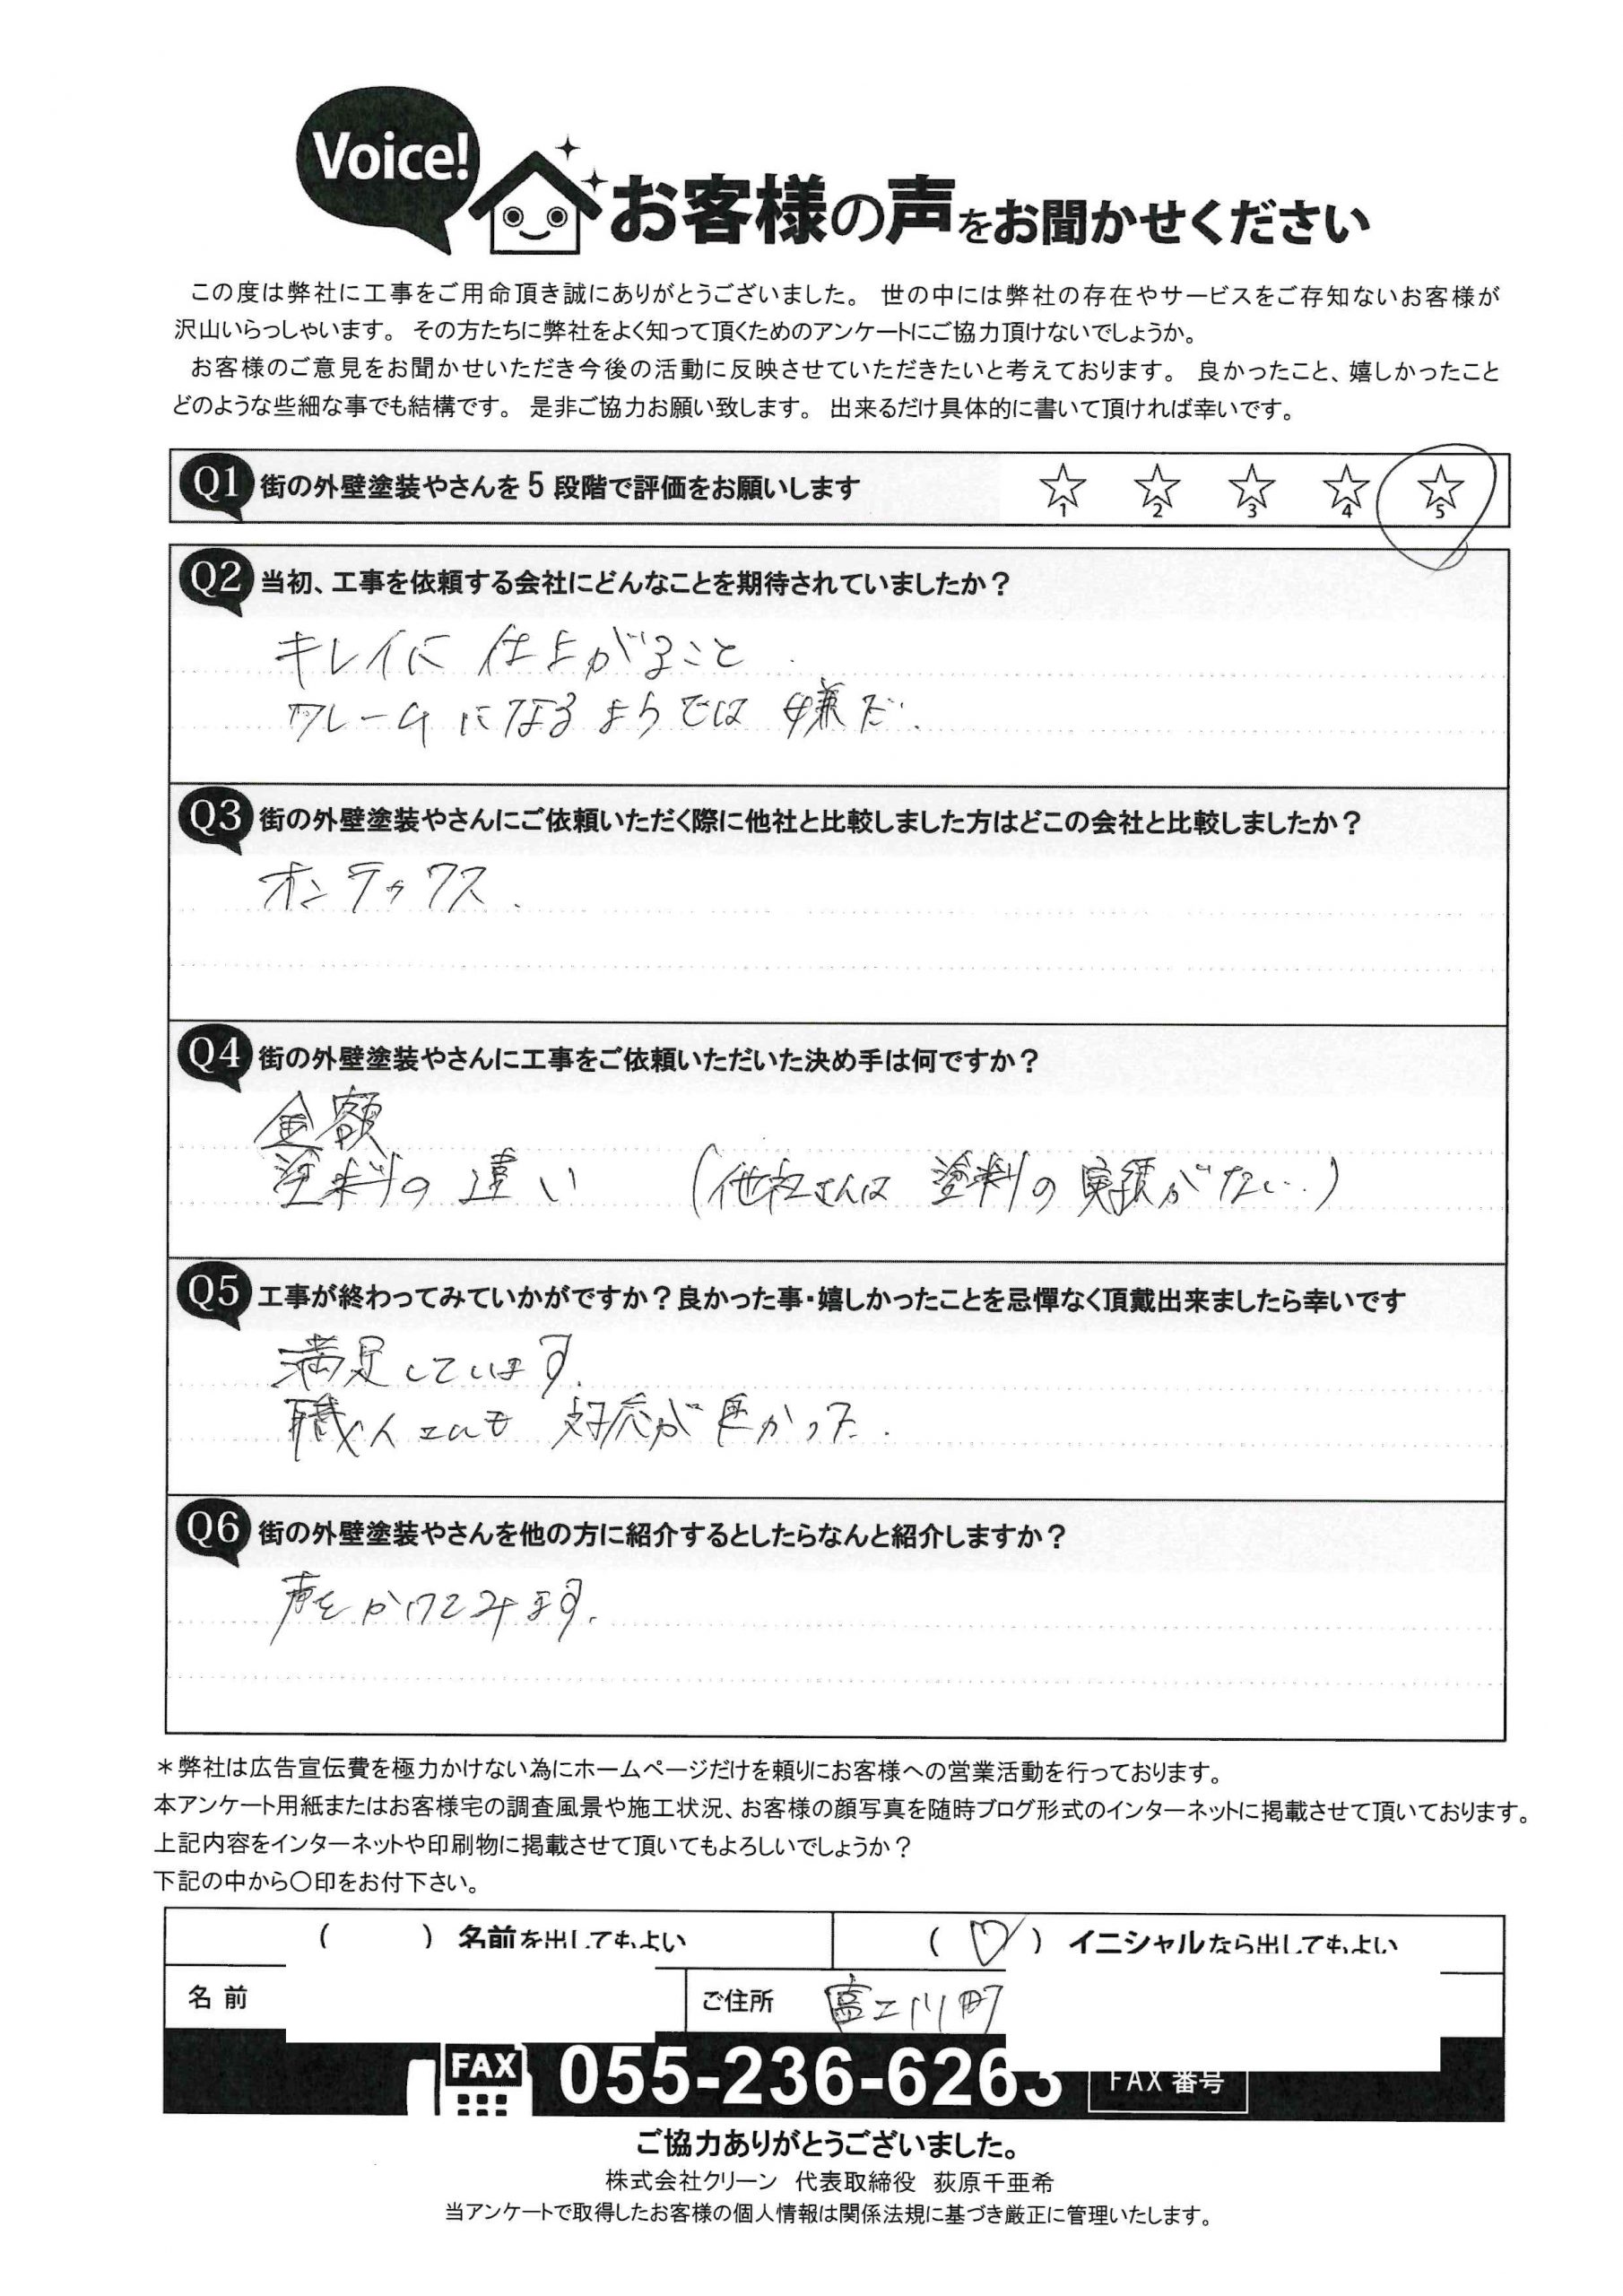 Voice!
お客様の声をお聞かせください
この度は弊社に工事をご用命頂き誠にありがとうございました。 世の中には弊社の存在やサービスをご存知ないお客様が
沢山いらっしゃいます。 その方たちに弊社をよく知って頂くためのアンケートにご協力頂けないでしょうか。
お客様のご意見をお聞かせいただき今後の活動に反映させていただきたいと考えております。 良かったこと、嬉しかったこと
どのような些細な事でも結構です。 是非ご協力お願い致します。 出来るだけ具体的に書いて頂ければ幸いです。
Q1 街の外壁塗装やさんを5段階で評価をお願いします ☆1 ☆2 ☆3 ☆4 ☆5
Q2 当初、工事を依頼する会社にどんなことを期待されていましたか？
キレイに 仕上がること
クレームになるようでは 嫌だ.
Q3 街の外壁塗装やさんにご依頼いただく際に他社と比較しました方はどこの会社と比較しましたか？
オンテックス.
Q4 街の外壁塗装やさんに工事をご依頼いただいた決め手は何ですか？
金額
塗料の違い (他社さんは 塗料の実績がない..)
Q5 工事が終わってみていかがですか？良かった事・嬉しかったことを忌憚なく頂戴出来ましたら幸いです
満足しています.
職人さんも 対応が良かった.
Q6 街の外壁塗装やさんを他の方に紹介するとしたらなんと紹介しますか？
声をかけてみます.
＊弊社は広告宣伝費を極力かけない為にホームページだけを頼りにお客様への営業活動を行っております。
本アンケート用紙またはお客様宅の調査風景や施工状況、お客様の顔写真を随時ブログ形式のインターネットに掲載させて頂いております。
上記内容をインターネットや印刷物に掲載させて頂いてもよろしいでしょうか？
下記の中から〇印をお付下さい。
( ) 名前を出してもよい ( ♡ ) イニシャルなら出してもよい
名 前 ご住所 富士川町
FAX 055-236-6263 FAX 番号
ご協力ありがとうございました。
株式会社クリーン 代表取締役 荻原千亜希
当アンケートで取得したお客様の個人情報は関係法規に基づき厳正に管理いたします。